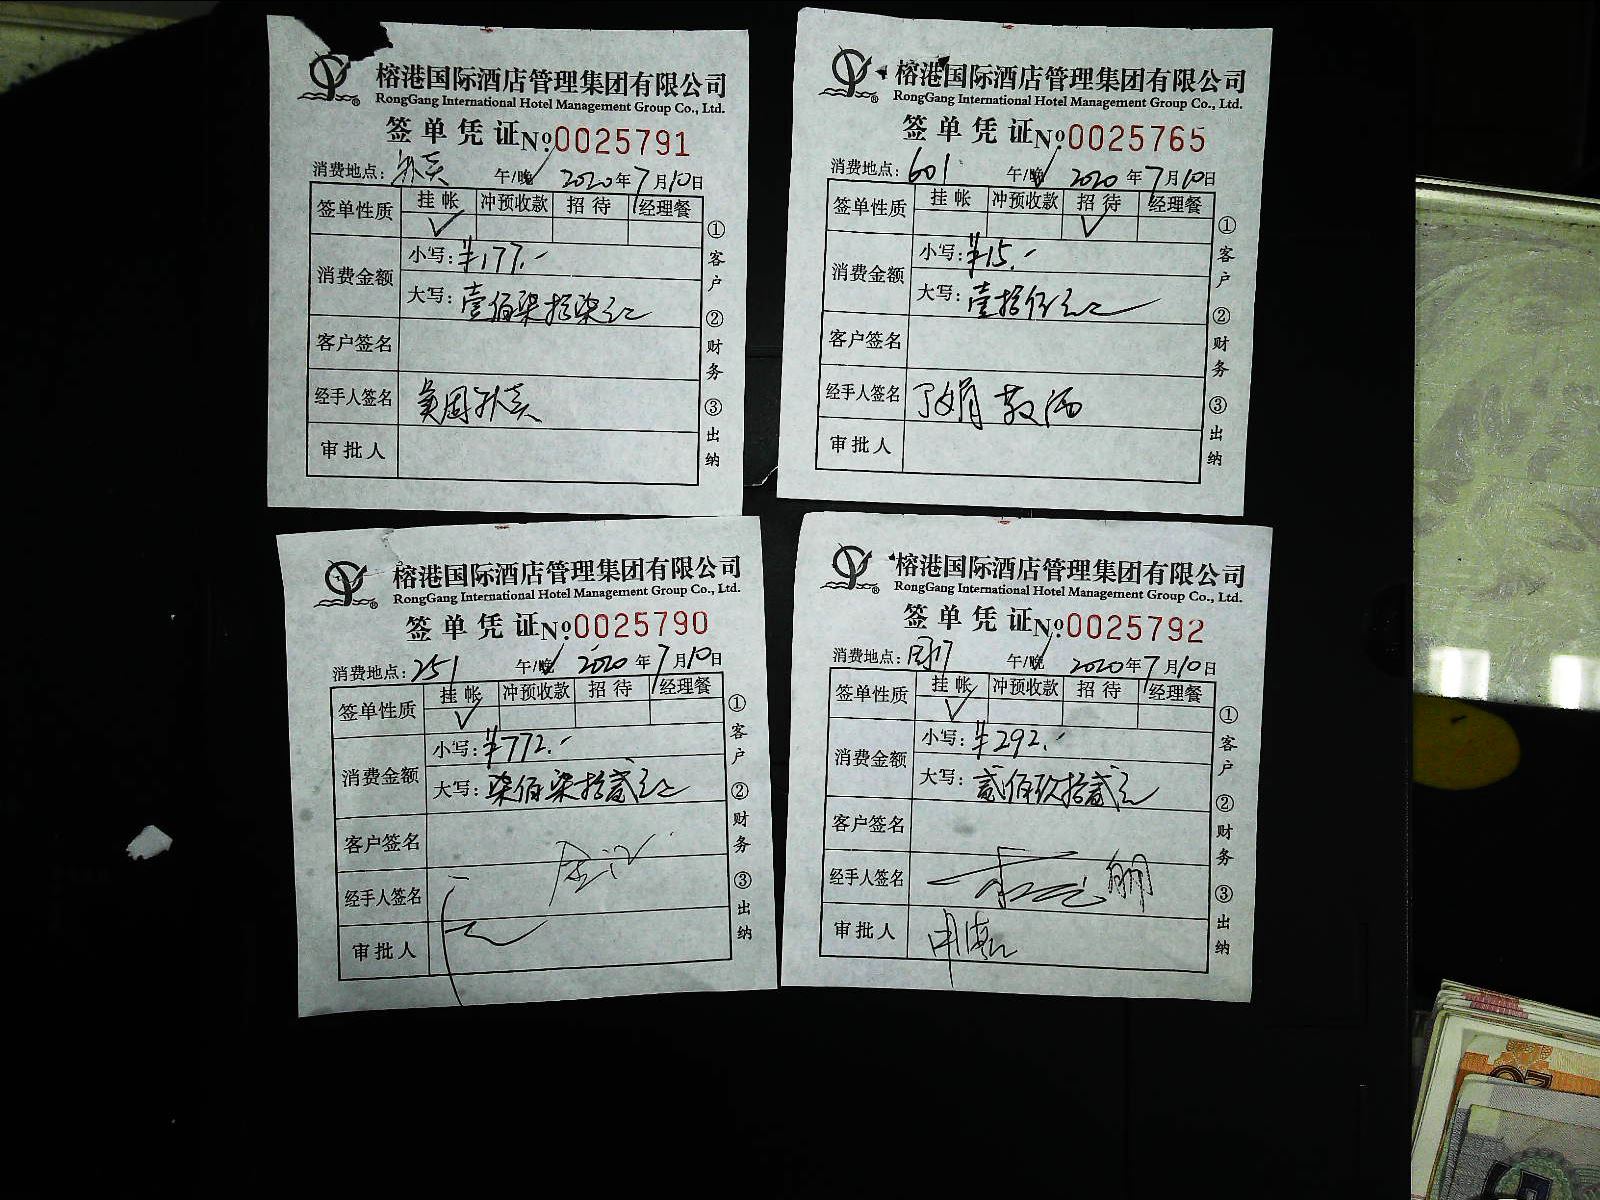 榕港国际酒店管理集团有限公司
RongGang International Hotel Management Group Co., Ltd.
签单凭证 №0025791
消费地点: 外卖 午/晚 2020年7月10日
签单性质 挂帐 冲预收款 招待 经理餐
✓
消费金额 小写: ¥177.-
大写: 壹佰柒拾柒元正
客户签名
经手人签名 美团外卖
审批人
①客户 ②财务 ③出纳
榕港国际酒店管理集团有限公司
RongGang International Hotel Management Group Co., Ltd.
签单凭证 №0025765
消费地点: 601 午/晚 2020年7月10日
签单性质 挂帐 冲预收款 招待 经理餐
✓
消费金额 小写: ¥15.-
大写: 壹拾伍元正
客户签名
经手人签名 丁文娟 敬酒
审批人
①客户 ②财务 ③出纳
榕港国际酒店管理集团有限公司
RongGang International Hotel Management Group Co., Ltd.
签单凭证 №0025790
消费地点: 251 午/晚 2020年7月10日
签单性质 挂帐 冲预收款 招待 经理餐
✓
消费金额 小写: ¥772.-
大写: 柒佰柒拾贰元正
客户签名
经手人签名
审批人
①客户 ②财务 ③出纳
榕港国际酒店管理集团有限公司
RongGang International Hotel Management Group Co., Ltd.
签单凭证 №0025792
消费地点: 午/晚 2020年7月10日
签单性质 挂帐 冲预收款 招待 经理餐
✓
消费金额 小写: ¥292.-
大写: 贰佰玖拾贰元
客户签名
经手人签名
审批人
①客户 ②财务 ③出纳